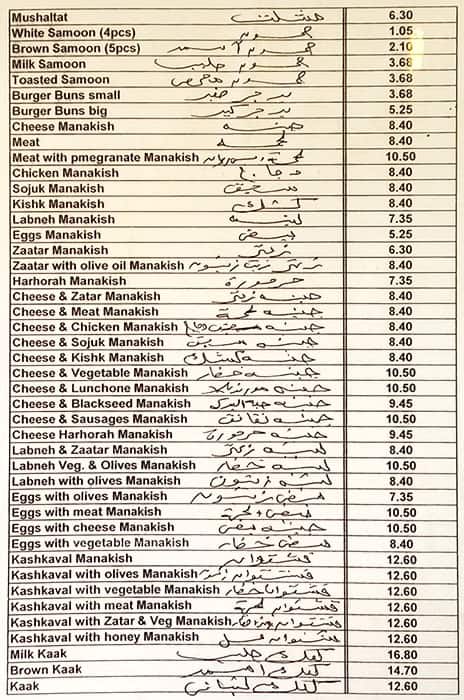 Mushaltat مشلتت 6.30
White Samoon (4pcs) صمون 1.05
Brown Samoon (5pcs) صمون اسمر 2.10
Milk Samoon صمون حليب 3.68
Toasted Samoon صمون محمص 3.68
Burger Buns small برجر صغير 3.68
Burger Buns big برجر كبير 5.25
Cheese Manakish جبنه 8.40
Meat لحمة 8.40
Meat with pmegranate Manakish لحمة 10.50
Chicken Manakish دجاج 8.40
Sojuk Manakish سجق 8.40
Kishk Manakish كشك 8.40
Labneh Manakish لبنه 7.35
Eggs Manakish بيض 5.25
Zaatar Manakish زعتر 6.30
Zaatar with olive oil Manakish زعتر زيت زيتون 8.40
Harhorah Manakish حرحورة 7.35
Cheese & Zatar Manakish جبنه زعتر 8.40
Cheese & Meat Manakish جبنه لحمة 8.40
Cheese & Chicken Manakish 8.40
Cheese & Sojuk Manakish جبنه سجق 8.40
Cheese & Kishk Manakish جبنه كشك 8.40
Cheese & Vegetable Manakish جبنه خضار 10.50
Cheese & Lunchone Manakish جبنه 10.50
Cheese & Blackseed Manakish جبنه 9.45
Cheese & Sausages Manakish جبنه نقانق 10.50
Cheese Harhorah Manakish جبنه حرحورة 9.45
Labneh & Zaatar Manakish لبنه زعتر 8.40
Labneh Veg. & Olives Manakish لبنه خضار 10.50
Labneh with olives Manakish لبنه زيتون 8.40
Eggs with olives Manakish بيض زيتون 7.35
Eggs with meat Manakish بيض لحمة 10.50
Eggs with cheese Manakish جبنه بيض 10.50
Eggs with vegetable Manakish بيض خضار 8.40
Kashkaval Manakish قشقوان 12.60
Kashkaval with olives Manakish قشقوان 12.60
Kashkaval with vegetable Manakish قشقوان خضار 12.60
Kashkaval with meat Manakish قشقوان لحمة 12.60
Kashkaval with Zatar & Veg Manakish قشقوان 12.60
Kashkaval with honey Manakish قشقوان عسل 12.60
Milk Kaak كعك حليب 16.80
Brown Kaak كعك اسمر 14.70
Kaak كعك لبناني 12.60